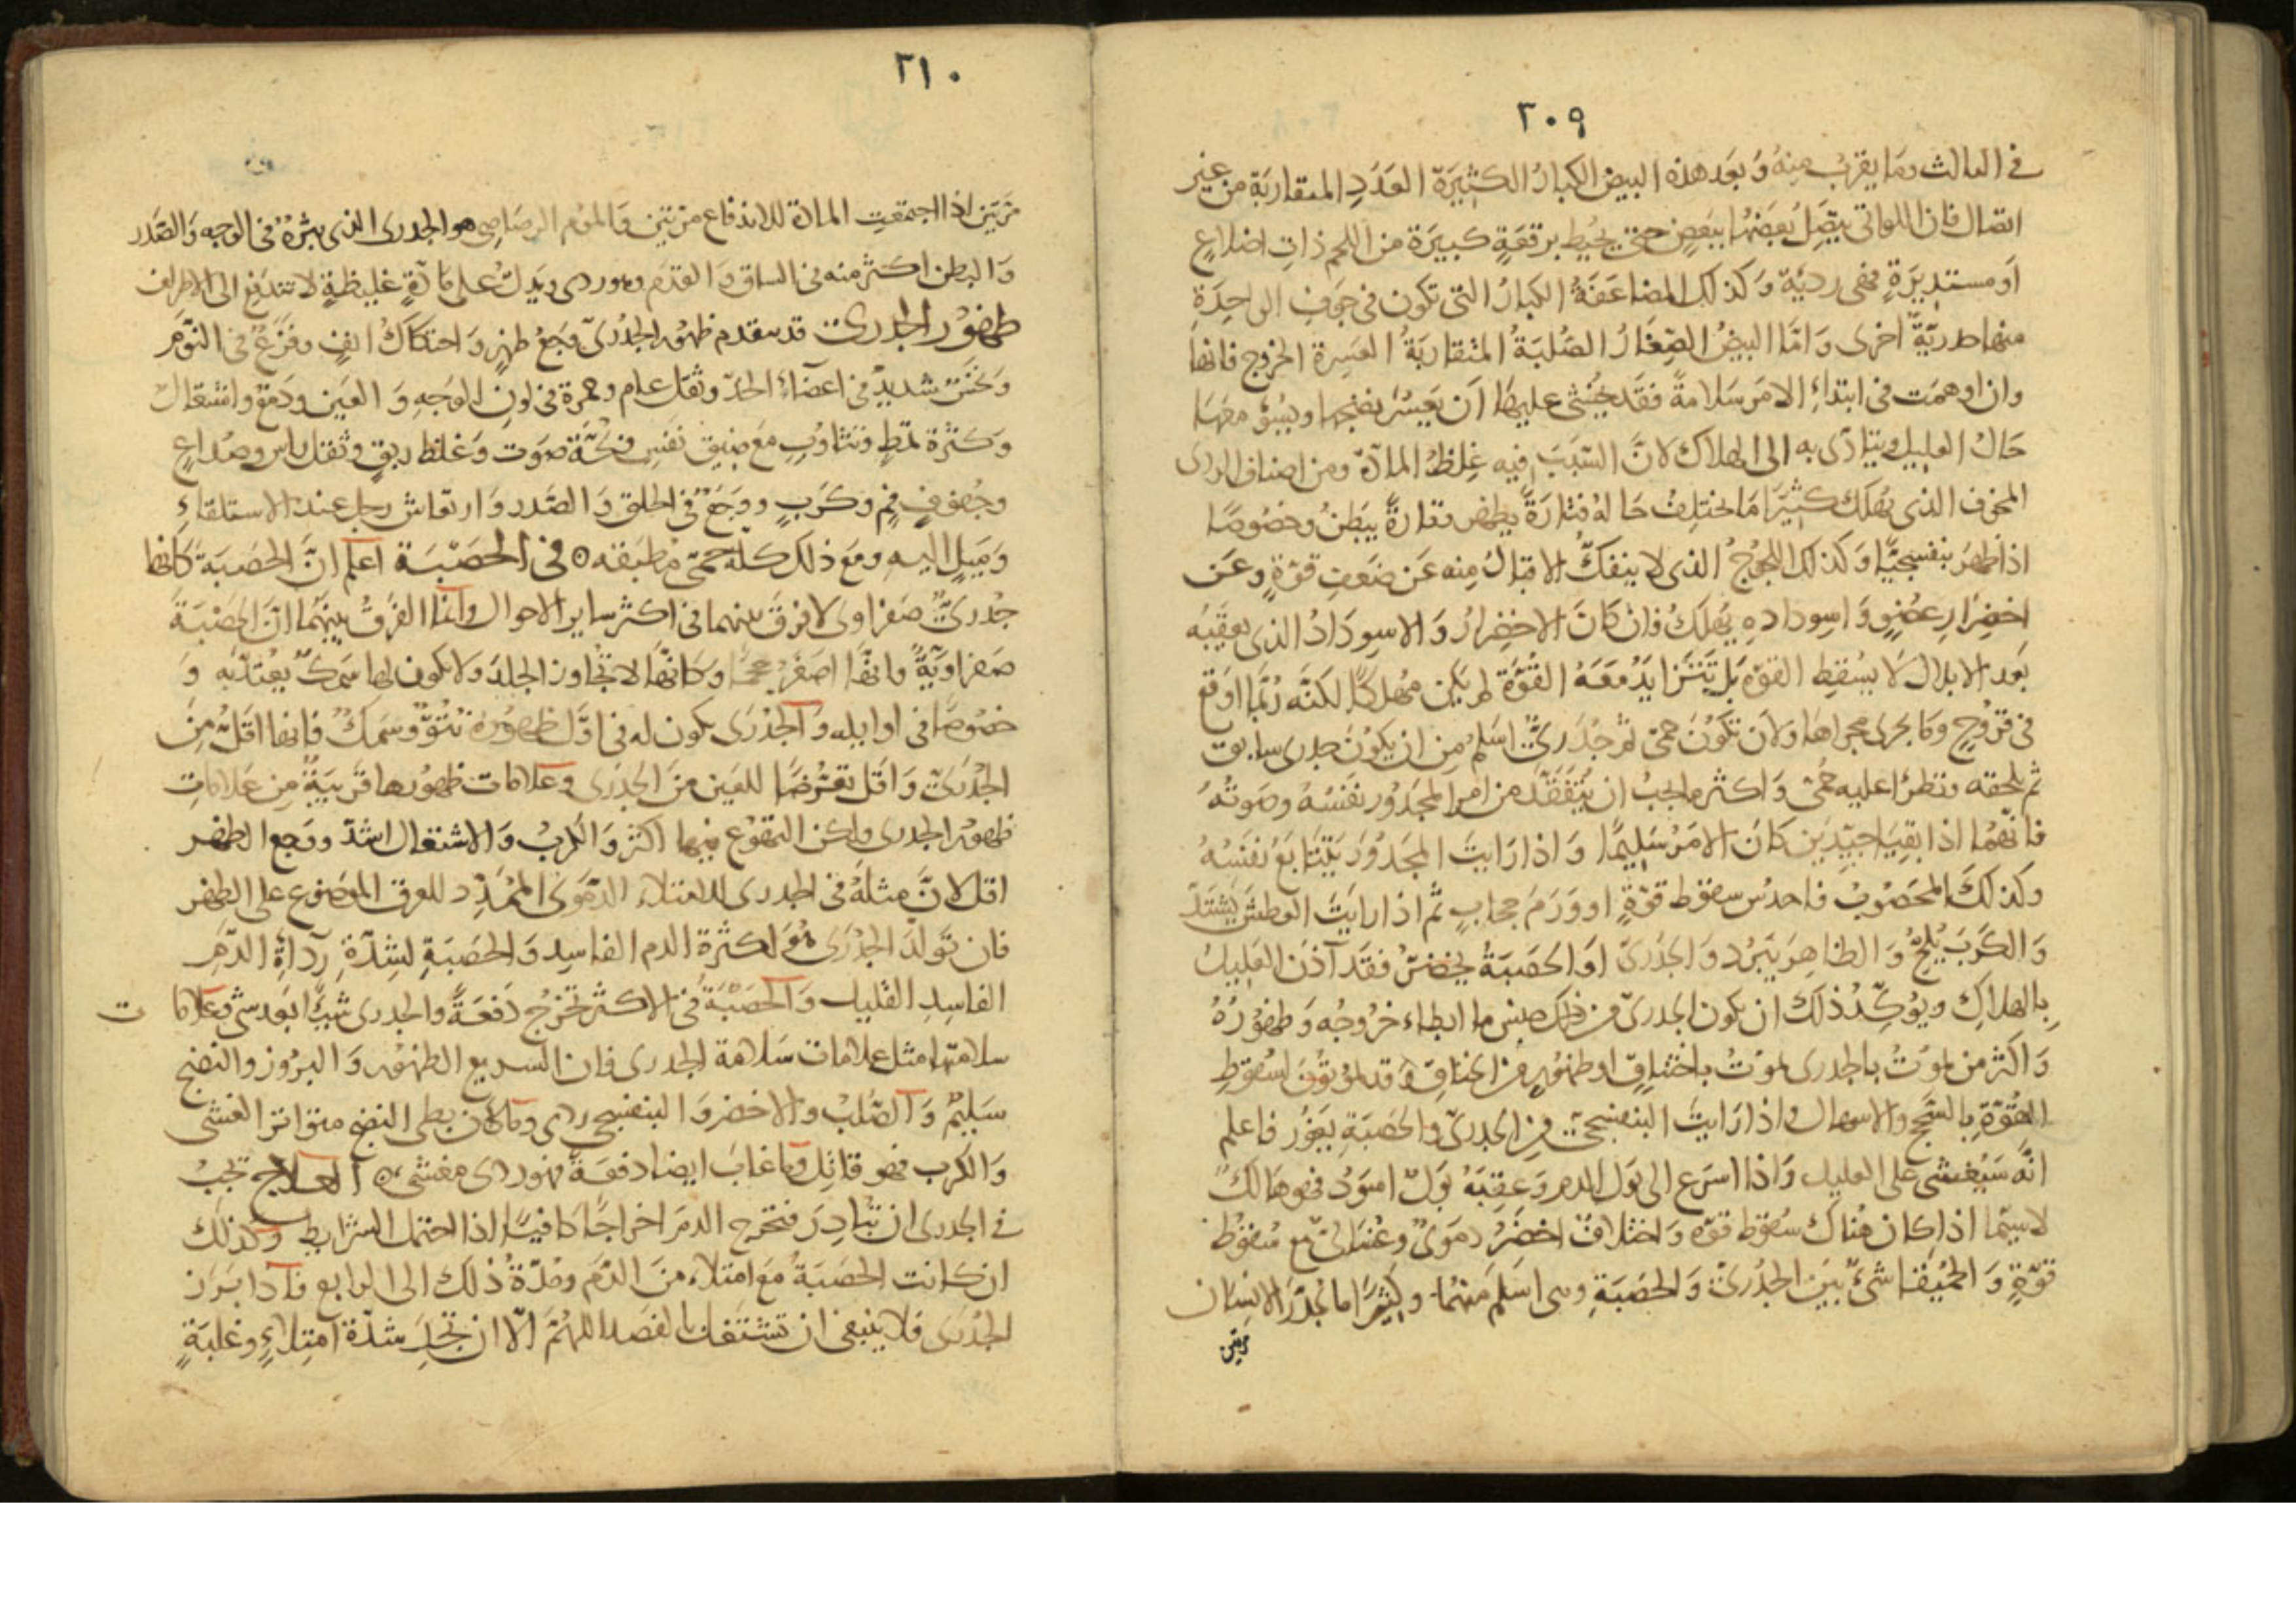 ٢٠٩
في الثالث وما يقرب منه وبعد هذه البيض الكبار الكثيرة العدد المتقاربة من غير
اتصال فان اللواتي يتصل بعضها ببعض حتى يحيط برقعة كبيرة من اللحم ذات اضلاع
او مستديرة فهي ردية وكذلك المضاعفة الكبار التي تكون في جوف الواحدة
منها درية اخرى واما البيض الصغار الصلبة المتقاربة العسرة الخروج فانها
وان اوهمت في ابتداء الامر سلامة فقد يخشى عليها ان يعسر نضجها ويسؤ معها
حال العليل ويتادى به الى الهلاك لان السبب فيه غلظ المادة ومن اصناف الردى
المخوف الذى يهلك كثيرا ما يختلف حاله فتارة يظهر وتارة يبطن وخصوصا
اذا ظهر بنفسجيا وكذلك اللجوج الذى لا ينفك الاقبال منه عن ضعف قوة وعن
اخضرار عضو واسوداده يهلك فان كان الاخضرار والاسوداد الذى يعقبه
بعد الابلال لا يسقط القوة بل تتزايد معه القوة لم يكن مهلكا لكنه ربما اوقع
في قروح وما يجرى مجراها ولان تكون حمى ثم جدرى اسلم من ان يكون جدرى سابق
ثم يلحقه وتطرا عليه حمى واكثر ما يجب ان يتفقد من امر المجدور نفسه وصوته
فانهما اذا بقيا جيدين كان الامر سليما واذا رايت المجدور يتتابع نفسه
وكذلك المحصوب فاحدس سقوط قوة او ورم حجاب ثم اذا رايت العطش يشتد
والكرب يلح والظاهر يبرد والجدرى او الحصبة يخضر فقد آذن العليل
بالهلاك ويؤكد ذلك ان يكون الجدرى من جنس ما ابطاء خروجه وظهوره
واكثر من يموت بالجدرى يموت باختناق او ظهور من الخناق وقد يموتون لسقوط
القوة بالسحج والاسهال واذا رايت البنفسجى من الجدرى والحصبة يغور فاعلم
انه سيغشى على العليل واذا اسرع الى بول الدم وعقبه بول اسود فهو هالك
لاسيما اذا كان هناك سقوط قوه واختلاف اخضر دموى وغسالى مع سقوط
قوة والحميقا شئ بين الجدرى والحصبة وهى اسلم منهما وكثيرا ما يجدر الانسان
مرتين
٢١٠
مرتين اذا اجتمعت المادة للاندفاع مرتين والموم الرصاصى هو الجدرى الذى بثره في الوجه والصدر
والبطن اكثر منه في الساق والقدم وهو ردى ويدل على مادة غليظة لا تندفع الى الاطراف
ظهور الجدرى قد يتقدم ظهور الجدرى وجع ظهر واحتكاك انف وفزع في النوم
ونخس شديد في اعضاء الحلة وثقل عام وحمرة في لون الوجه والعين ودمع واشتعال
وكثرة تمط وتثاوب مع ضيق نفس وبحة صوت وغلظ ريق وثقل راس وصداع
وجفوف فم وكرب ووجع في الحلق والصدر وارتعاش رجل عند الاستلقاء
وميل اليه ومع ذلك كله حمى مطبقه ه في الحصبة اعلم ان الحصبة كانها
جدرى صفراوى لا فرق بينهما في اكثر ساير الاحوال وانما الفرق بينهما ان الحصبة
صفراوية وانها اصغر حجما وكانها لا تجاوز الجلد ولا يكون لها سمك يعتد به و
خصوصا في اوايله والجدرى يكون له في اول ظهوره نتؤ وسمك فانها اقل من
الجدرى واقل تعرضا للعين من الجدرى وعلامات ظهورها قريبة من علامات
ظهور الجدرى ولكن التهوع فيها اكثر والكرب والاشتعال اشد ووجع الظهر
اقل لان مثله في الجدرى للامتلاء الدموى الممدد للعرق الموضوع على الظهر
فان تولد الجدرى هو لكثرة الدم الفاسد والحصبة لشدة ردآءة الدم
الفاسد القليل والحصبة في الاكثر تخرج دفعة والجدرى شيئا بعد شئ وعلاما ت
سلامتها مثل علامات سلامة الجدرى فان السريع الظهور والبروز والنضج
سليم والصلب والاخضر والبنفسجى ردى وما كان بطى النضج متواتر الغشى
والكرب فهو قاتل وما غاب ايضا دفعة فهو ردى مغشى ه العلاج تجب
في الجدرى ان تبادر فتخرج الدم اخراجا كافيا اذا احتمل الشرايط وكذلك
ان كانت الحصبة مع امتلاء من الدم ومدة ذلك الى الرابع فاذا برز
الجدرى فلا ينبغى ان تشتغل بالفصد اللهم الا ان تجد شدة امتلاء وغلبة